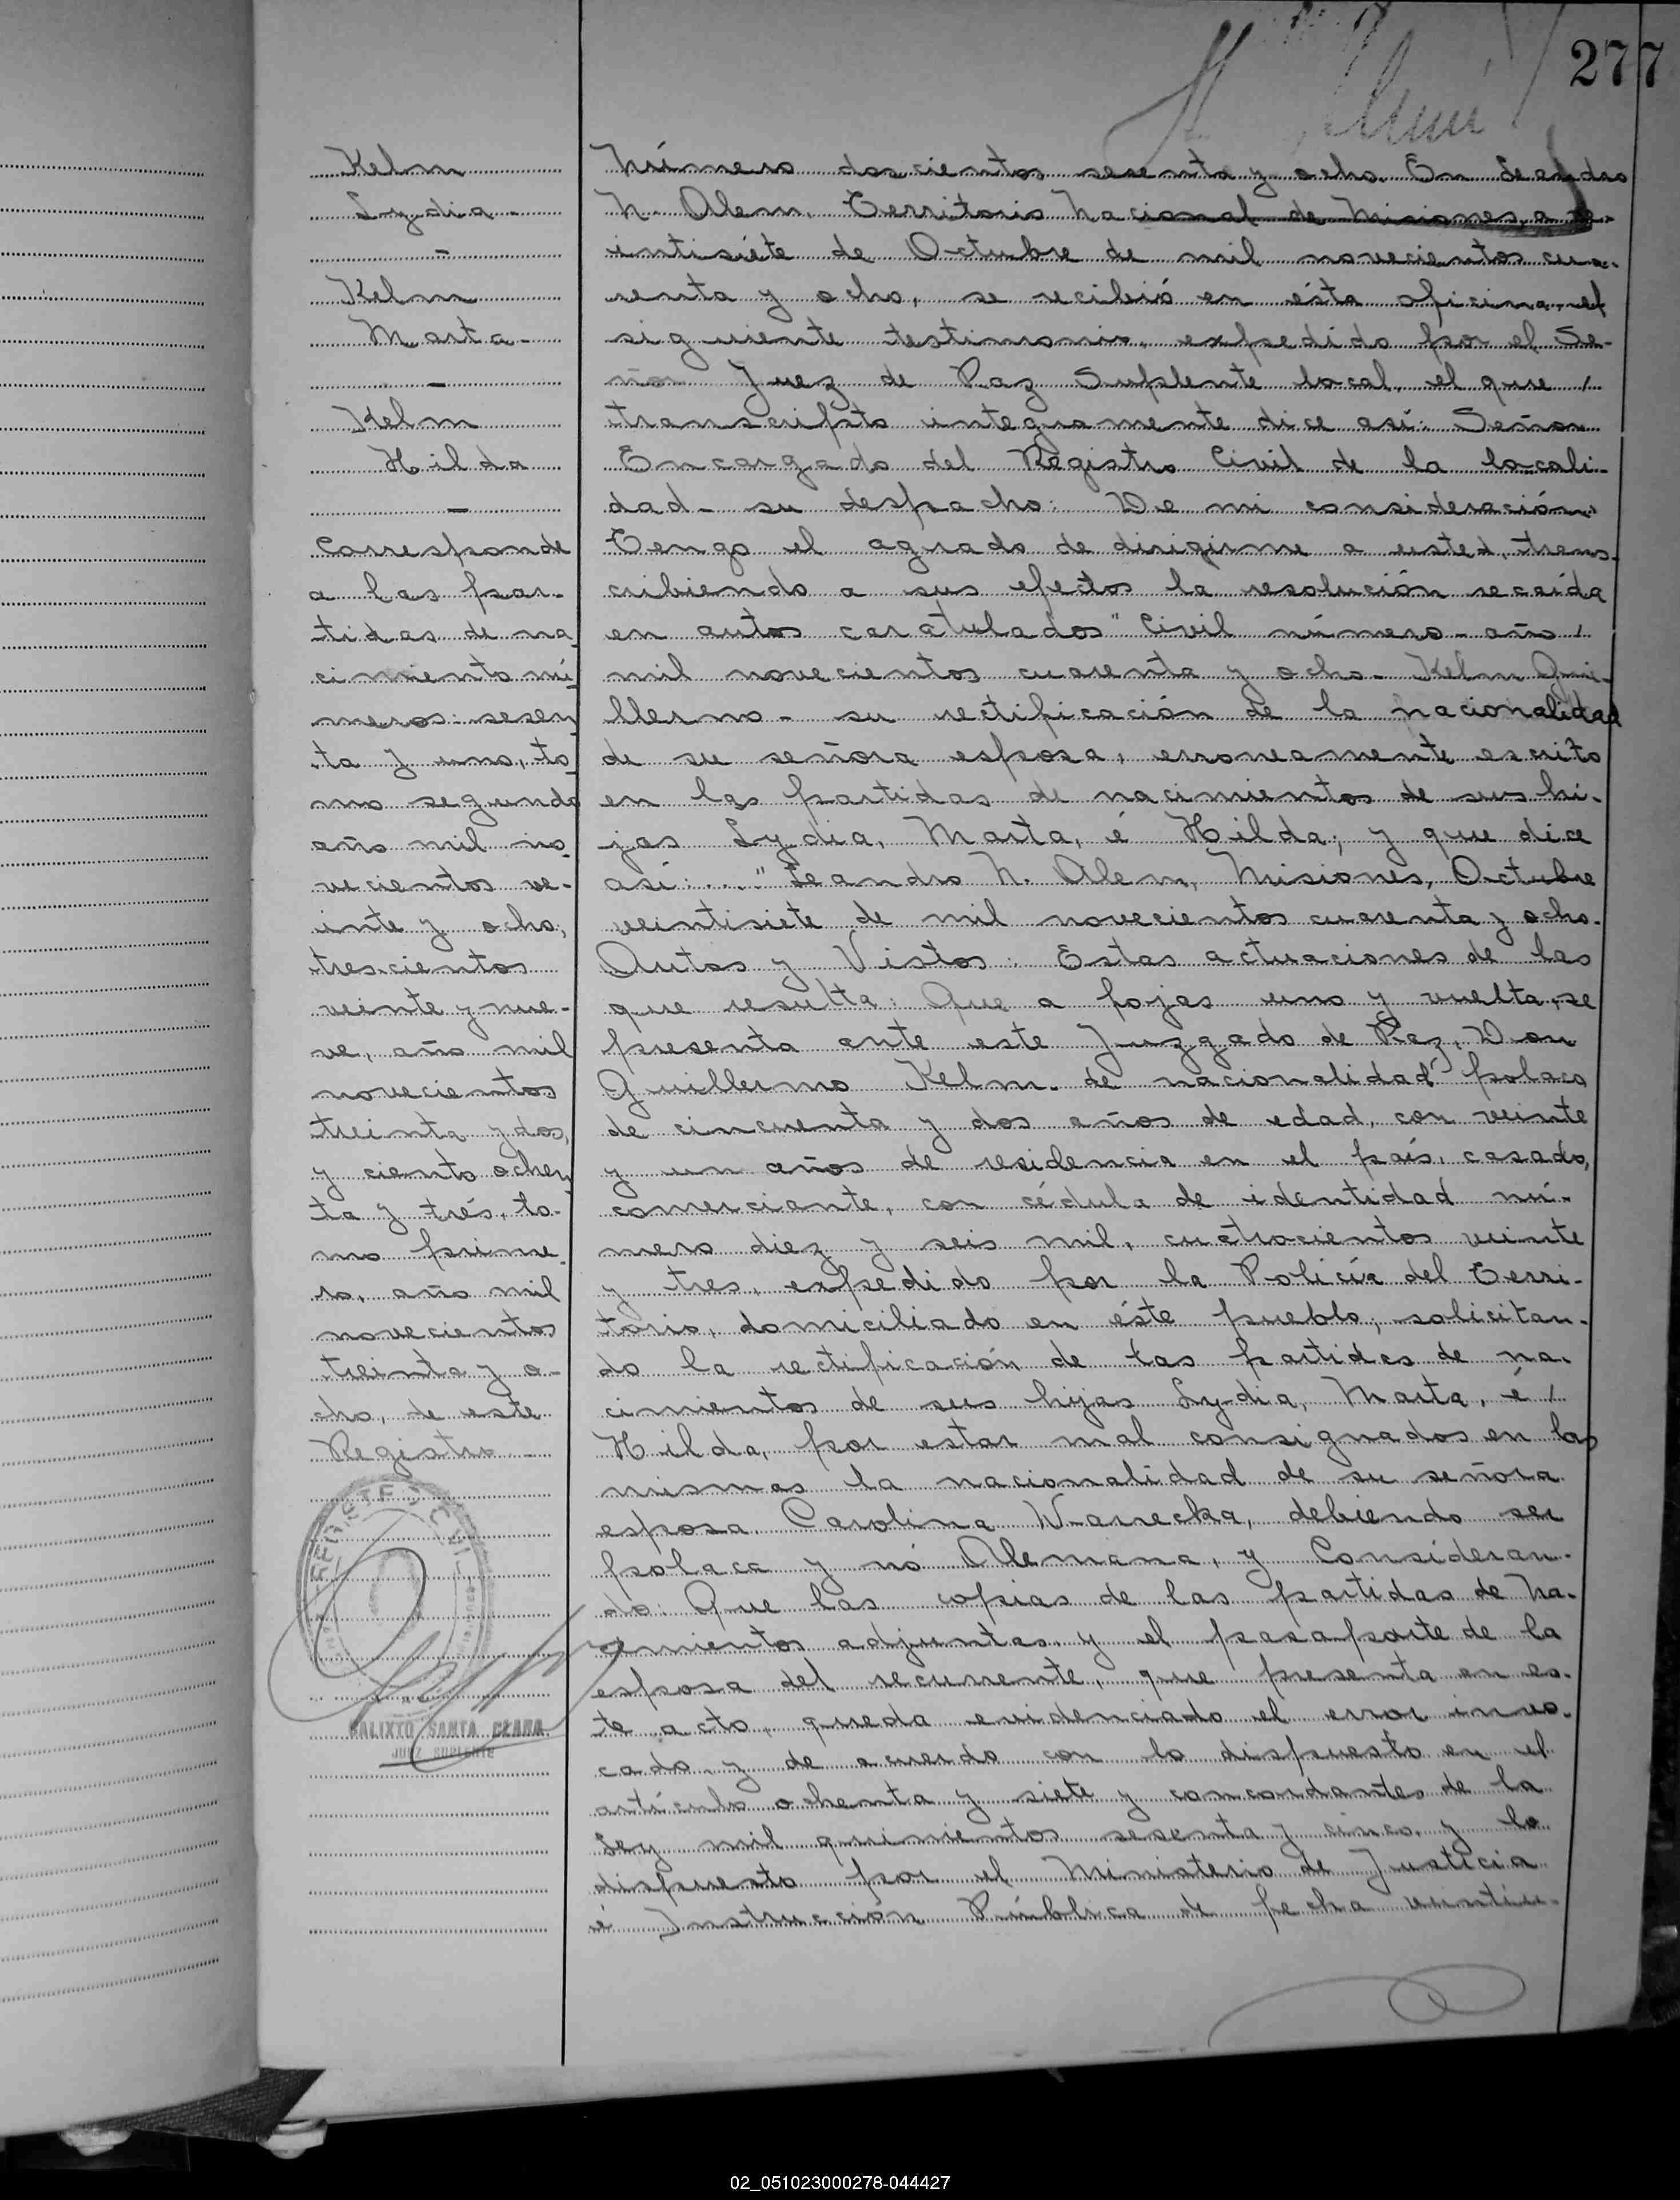 277
Kelm
Lydia-
-
Kelm
Marta-
-
Kelm
Hilda
-
Corresponde
a las par-
tidas de na
cimiento nú-
meros: sesen
ta y uno, to-
mo segundo
año mil no-
vecientos ve-
inte y ocho,
trescientos
veinte y nue-
ve, año mil
novecientos
treinta y dos,
y ciento ochen
ta y trés, to-
mo prime-
ro, año mil
novecientos
treinta y o-
cho, de este
Registro
CALIXTO SANTA CLARA
JUEZ SUPLENTE
Número doscientos sesenta y ocho. En Leandro
N. Alem, Territorio Nacional de Misiones, a ve-
intisiéte de Octubre de mil novecientos cua-
renta y ocho, se recibió en ésta oficina, el
siguiente testimonio, expedido por el Se-
ñor Juez de Paz Suplente local, el que /
transcripto integramente dice así: Señor
Encargado del Registro Civil de la locali-
dad- su despacho: De mi consideración:
Tengo el agrado de dirigirme a usted, trans-
cribiendo a sus efectos la resolución recaída
en autos caratulados "Civil número- año /
mil novecientos cuarenta y ocho- Kelm Gui-
llermo- su rectificación de la nacionalidad
de su señora esposa, erroneamente escrito
en las partidas de nacimientos de sus hi-
jas Lydia, Marta, é Hilda; y que dice
así: ...." Leandro N. Alem, Misiones, Octubre
veintisiete de mil novecientos cuarenta y ocho.
Autos y Vistos: Estas actuaciones de las
que resulta: Que a fojas uno y vuelta, se
presenta ante este Juzgado de Paz, Don
Guillermo Kelm- de nacionalidad polaco
de cincuenta y dos años de edad, con veinte
y un años de residencia en el país, casado,
comerciante, con cédula de identidad nú-
mero diez y seis mil, cuatrocientos veinte
y tres, expedido por la Policía del Terri-
torio, domiciliado en éste pueblo, solicitan-
do la rectificación de las partidas de na-
cimientos de sus hijas Lydia, Marta, é /
Hilda, por estar mal consignados en las
mismas la nacionalidad de su señora
esposa Carolina Warecka, debiendo ser
polaca y nó Alemana, y Consideran-
do: Que las copias de las partidas de na-
cimientos adjuntas, y el pasaporte de la
esposa del recurrente, que presenta en es-
te acto, queda evidenciado el error invo-
cado, y de acuerdo con lo dispuesto en el
artículo ochenta y siete y concordantes de la
Ley mil quinientos sesenta y cinco, y lo
dispuesto por el Ministerio de Justicia
é Instrucción Pública de fecha veintiu-
02_051023000278-044427